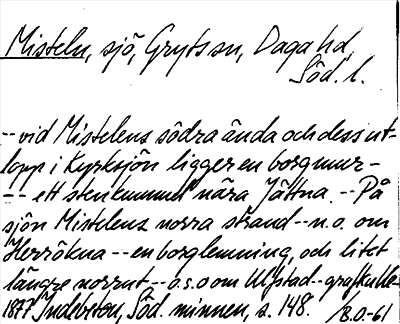 Misteln, sjö, Gryts sn, Daga hd,
Söd. l.
-- vid Mistelens södra ända och dess ut-
lopp i Kyrksjön ligger en borgmur -
-- ett stenkummel nära Jättna. -- På
sjön Mistelens norra strand -- n.o. om
Herrökna -- en borglemning, och litet
längre norrut -- o.s.o om Ulfstad -- grafkulle
1877 Indebetou, Söd. minnen, s. 148. /B.O-61